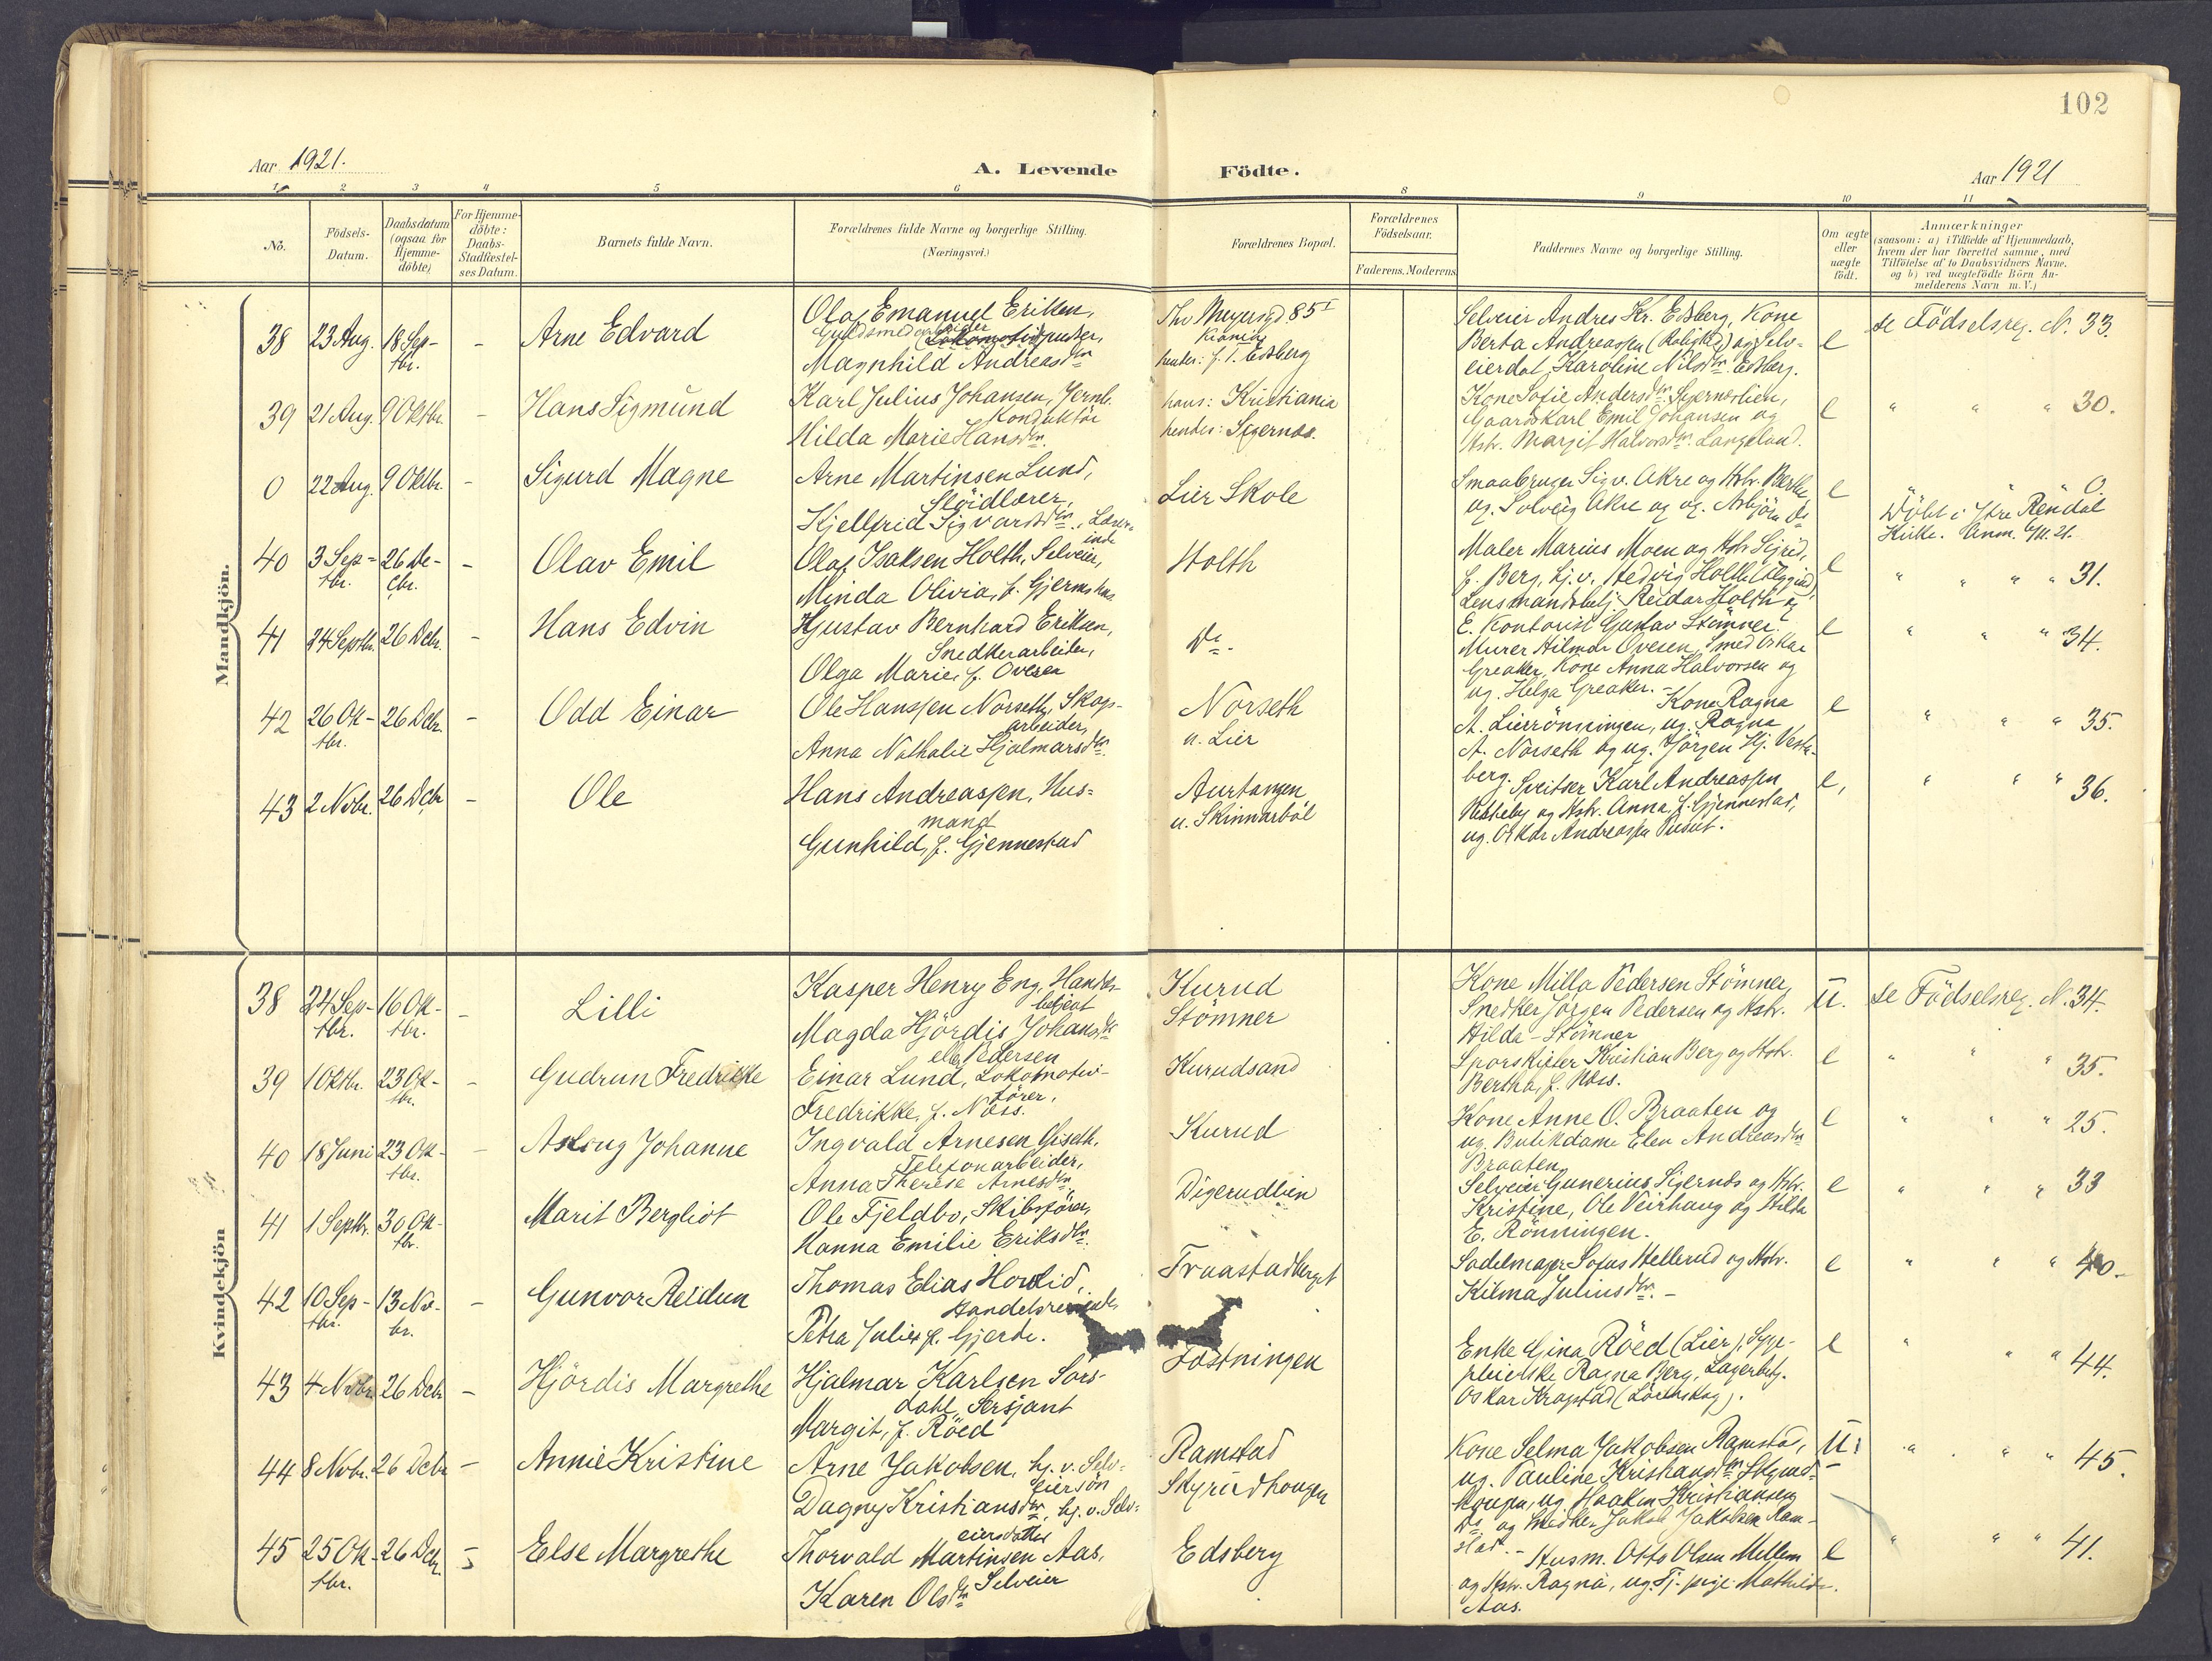 102
Aar 1921.
A. Levende
Födte.
Aar 1921
1 2 3 4 5 6 8 9 10 11
No.
Födsels-
Datum.
Daabsdatum
(ogsaa for
Hjemme-
döbte)
For Hjemme-
döbte:
Daabs-
Stadfæstel-
ses Datum.
Barnets fulde Navn.
Forældrenes fulde Navne og borgerlige Stilling.
(Næringsvei.)
Forældrenes Bopæl.
Forældrenes
Födselsaar.
Faderens. Moderens
Faddernes Navne og borgerlige Stilling.
Om ægte
eller
uægte
födt.
Anmærkninger
(saasom: a) i Tilfælde af Hjemmedaab,
hvem der har forrettet samme, med
Tilföielse af to Daabsvidners Navne.
og b) ved uægtefödte Börn An-
melderens Navn m. V.)
Mandkjön.
38 23 Aug. 18 Sep-
tbr.
-
Arne Edvard
Olaf Emanuel Eriksen,
Guldsmedarbeider
Magnhild Andreasdtr
Thv Meyersgd. 85 I
Kristiania
hendes: f. T. Edsberg
Selveier Andres Kr. Edsberg, Kone
Berta Andreassen og Selv-
eierdat. Karoline Nilsdtr Edsberg.
e
se Födselsreg. N. 33.
39 21 Aug. 9 Oktbr.
-
Hans Sigmund
Karl Julius Johansen, Jernb.
Konduktör
Hilda Marie Hansdtr.
hans: Kristiania
hendes: Sigernes.
Kone Sofie Andersdtr
Gaardskarl Emil Johansen og
Hstr. Margit Halvorsdtr Langeland.
e
" " " 30.
0 22 Aug. 9 Oktbr.
-
Sigurd Magne
Arne Martinsen Lund,
Slöidlærer,
Kjellfrid Sigvardsdtr, Lærer-
inde
Lier Skole
Smaabruger Sigv. Akre og Hstr. Berthe,
ug. Solveig Akre og ug. Asbjörn
e
" " " 0
Döbt i Ytre Rendal
Kirke. Anm.
40 3 Sep-
tbr.
26 De-
cbr.
-
Olav Emil
Olaf Isaksen Holth, Selveier,
Minda Olivia, f. Gjermshus
Holth
Maler Marius Moen og Hstr Sigrid,
f. Berg, hj. v. Hedvig Holth
Lensmandsbetj. Reidar Holth og
E. Kontorist Gustav Stömner
e
" " " " 31.
41 24 Septbr. 26 Dcbr.
-
Hans Edvin
Gustav Bernhard Eriksen,
Snedkerarbeider,
Olga Marie, f. Ovesen
Do.
Murer Hilmar Ovesen, Smed Oskar
Greaker, Kone Anna Halvorsen og
ug. Helga Greaker. -
e
" " " 34.
42 26 Ok-
tbr.
26 Dcbr.
-
Odd Einar
Ole Hanssen Norseth, Skog-
arbeider,
Anna Nathalie Hjalmarsdtr.
Norseth
u. Lier
Kone Ragna
A. Lierrönningen, ug. Ragna
A. Norseth og ug. Jörgen Hj. Vest-
berg.
e
" " " 35.
43 2 Nvbr. 26 Dcbr
-
Ole
Hans Andreassen, Hus-
mand
Gunhild, f. Gjennestad
Aurtangen
u. Skinnarböl
Sveitser Karl Andreassen
og Hstr. Anna, f. Gjennestad,
ug. Oskar Andreassen
e,
" " " 36.
Kvindekjön
38 24 Sep-
tbr.
16 Ok-
tbr.
-
Lilli
Kasper Henry Eng, Handels-
betjent
Magda Hjördis Johansdtr
eller Pedersen
Kurud
Stömner
Kone Milla Pedersen Stömner,
Snedker Jörgen Pedersen og Hstr.
Hilda - Stömner
U.
se Födselsreg. N. 34.
39 1 Oktbr. 23 Ok-
tbr.
-
Gudrun Fredrikke
Einar Lund, Lokomotiv-
förer,
Fredrikke, f. Næss.
Kurudsand
Sporskifter Kristian Berg og Hstr.
Bertha, f. Næss.
e
" " " 35.
40 18 Juni 23 Ok-
tbr.
-
Aslaug Johanne
Ingvald Arnesen Giseth,
Telefonarbeider,
Anna Therese Arnesdtr
Kurud
Kone Anne O. Braaten og
ug. Butikdame Elen Andreasdtr
Braaten
e
" " " 25.
41 1 Septbr. 30 Ok-
tbr.
Marit Bergliot
Ole Fjeldbo, Skibsförer,
Hanna Emilie Eriksdtr.
Digerudlien
Selveier Gunerius Sigernes og Hstr.
Kristine, Ole Veirhaug og Hilda
E. Rönningen.
e
" " " 33
42 10 Sep-
tbr.
13 Nv-
br.
-
Gunvor Reidun
Thomas Elias Hovlid,
Handelsreisende,
Petra Julie, f. Gjerde.
Fraastadberget
Sadelmager Sofus Hellerud og Hstr.
Hilma Juliusdtr. -
e
" " " 40.
43 4 Nvbr 26 Dcbr
-
Hjördis Margrethe
Hjalmar Karlsen Sörs-
dahl, Sersjant
Margit, f. Röed
Fæstningen
Enke Gina Röed (Lier), Syge-
pleierske Ragna Berg, Lagerbetj.
Oskar Kragstad (Lörenskog).
e
" " " 44.
44 8 Nvbr. 26 Dcbr
-
Annie Kristine
Arne Jakobsen, hj. v. Selv-
eiersön
Dagny Kristiansdtr, hj. v. Selv-
eiersdatter
Ramstad
Skyrudhougen
Kone Selma Jakobsen Ramstad,
ug. Pauline Kristiansdtr Skyrud-
hougen, ug. Haakon Kristiansen
Do og Snedker Jakob Jakobsen Ram-
stad. -
U.
" " " 45.
45 25 Ok-
tbr.
26 Dcbr.
-
Else Margrethe
Thorvald Martinsen Aas,
Selveier
Karen Olsdtr
Edsberg
Husm. Otto Olsen Mellem
og Hstr. Ragna, ug. Tj. pige Mathilde
Aas.
e
" " " 41.